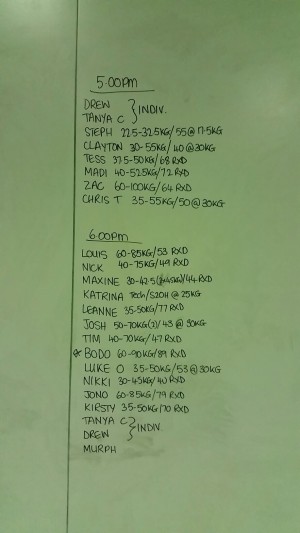 5:00pm
DREW
TANYA C } INDIV.
STEPH 22.5-32.5KG/55@17.5KG
CLAYTON 30-55KG/40@30KG
TESS 37.5-50KG/68 RXD
MADI 40-52.5KG/72 RXD
ZAC 60-100KG/64 RXD
CHRIS T 35-55KG/50@30KG
6:00pm
LOUIS 60-85KG/53 RXD
NICK 40-75KG/49 RXD
MAXINE 30-42.5 /44 RXD
KATRINA Tech/S2OH @ 25KG
LEANNE 35-50KG/77 RXD
JOSH 50-70KG(2)/43 @ 30KG
TIM 40-70KG/47 RXD
* BODO 60-90KG/89 RXD
LUKE O 35-50KG/53@30KG
NIKKI 30-45KG/40 RXD
JONO 60-85KG/79 RXD
KIRSTY 35-50KG/70 RXD
TANYA C
DREW } INDIV
MURPH